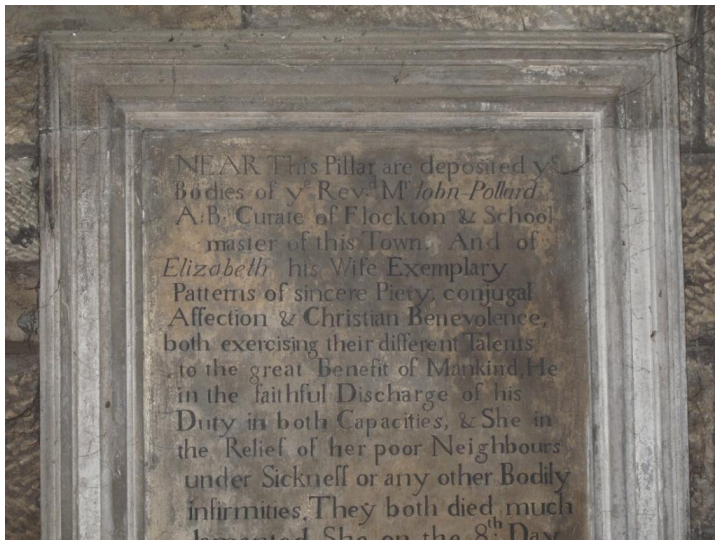 NEAR This Pillar are deposited yᵉ
Bodies of yᵉ Rev:ᵈ Mʳ Iohn Pollard
A:B: Curate of Flockton & School
master of this Town. And of
Elizabeth his Wife Exemplary
Patterns of sincere Piety, conjugal
Affection & Christian Benevolence,
both exercising their different Talents
to the great Benefit of Mankind, He
in the faithful Discharge of his
Duty in both Capacities, & She in
the Relief of her poor Neighbours
under Sickneſſ or any other Bodily
infirmities. They both died much
lamented She on the 8ᵗʰ Day